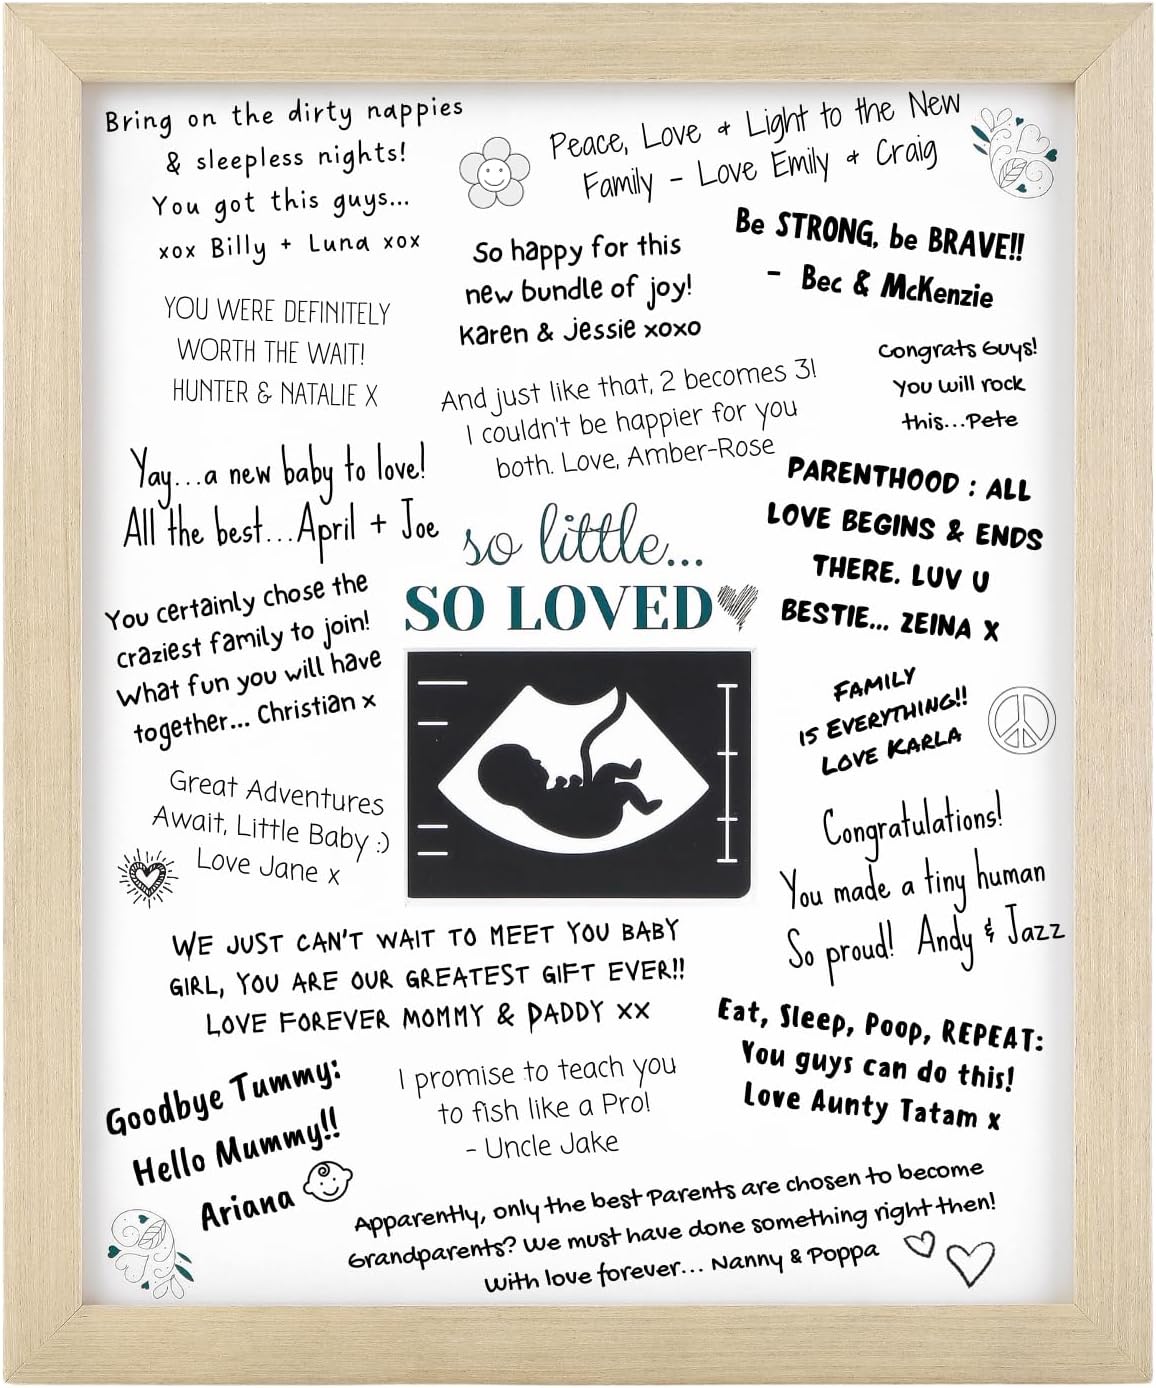 Bring on the dirty nappies
& sleepless nights!
You got this guys...
xox Billy + Luna xox
Peace, Love & Light to the New
Family - Love Emily & Craig
So happy for this
new bundle of joy!
Karen & Jessie xoxo
Be STRONG, be BRAVE!!
- Bec & McKenzie
YOU WERE DEFINITELY
WORTH THE WAIT!
HUNTER & NATALIE X
Congrats Guys!
You will rock
this...Pete
And just like that, 2 becomes 3!
I couldn't be happier for you
both. Love, Amber-Rose
Yay...a new baby to love!
All the best...April + Joe
PARENTHOOD : ALL
LOVE BEGINS & ENDS
THERE. LUV U
BESTIE... ZEINA X
so little...
SO LOVED
You certainly chose the
craziest family to join!
What fun you will have
together... Christian x
FAMILY
IS EVERYTHING!!
LOVE KARLA
Great Adventures
Await, Little Baby :)
Love Jane x
Congratulations!
You made a tiny human
So proud! Andy & Jazz
WE JUST CAN'T WAIT TO MEET YOU BABY
GIRL, YOU ARE OUR GREATEST GIFT EVER!!
LOVE FOREVER MOMMY & DADDY XX
Eat, Sleep, Poop, REPEAT:
You guys can do this!
Love Aunty Tatam x
Goodbye Tummy:
Hello Mummy!!
Ariana
I promise to teach you
to fish like a Pro!
- Uncle Jake
Apparently, only the best Parents are chosen to become
Grandparents? We must have done something right then!
With love forever... Nanny & Poppa